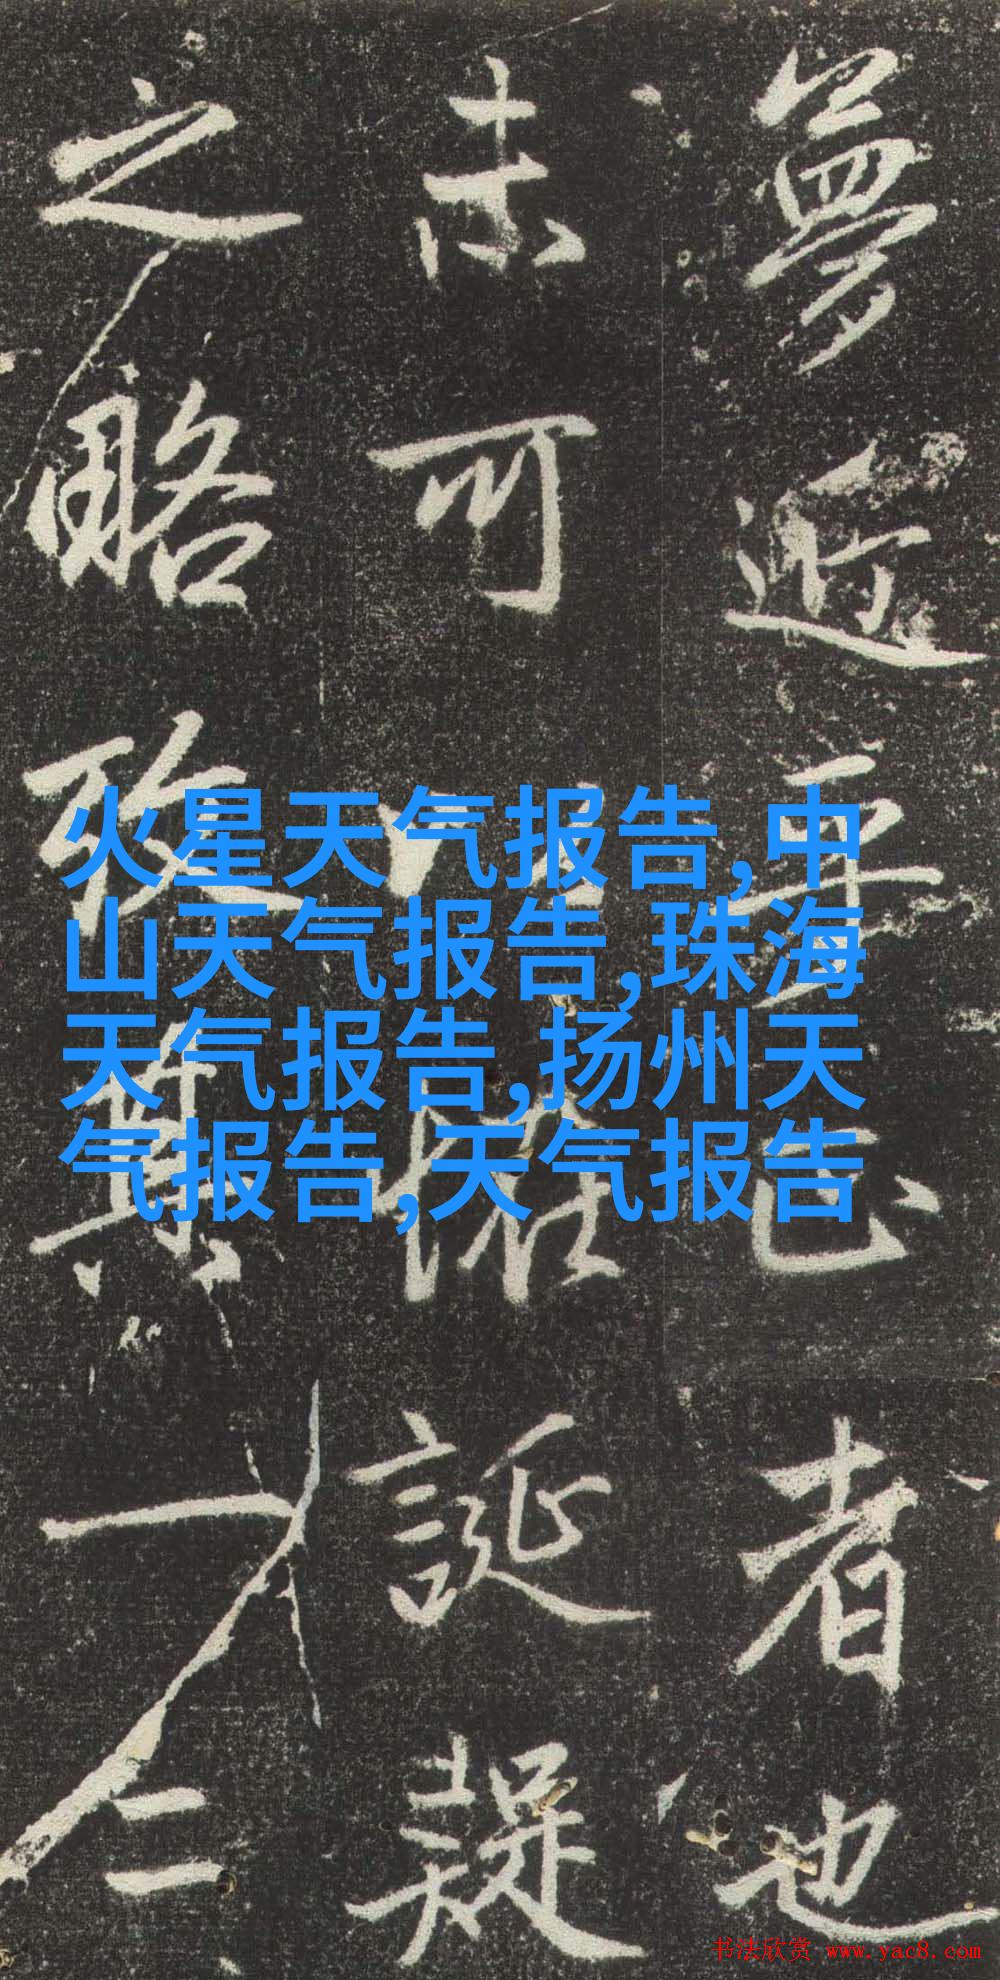 夢近乎正者也
未可以怪誕疑
之略其一二
火星天气报告,中
山天气报告,珠海
天气报告,扬州天
气报告,天气报告
书法欣赏 www.yac8.com